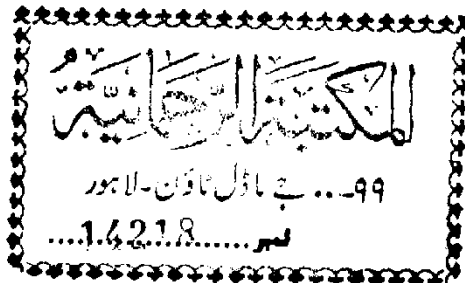 المكتبة الرحمانية
۹۹... جے ماڈل ٹاؤن۔ لاہور
نمبر.....14218.....